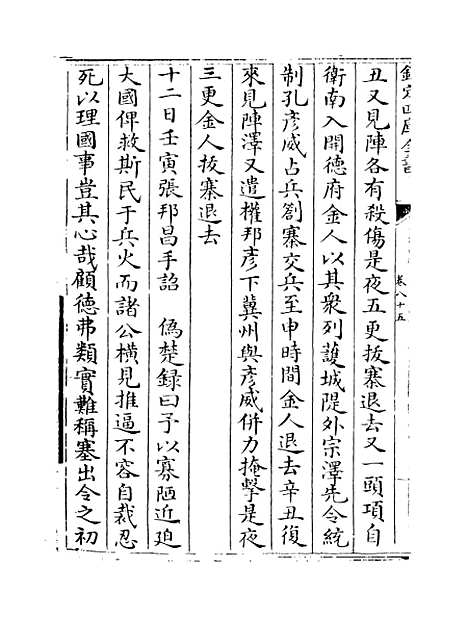 欽定四庫全書
卷八十五
丑又見陣各有殺傷是夜五更拔寨退去又一頭項自
衛南入開德府金人以其衆列護城隄外宗澤先令統
制孔彦威占兵劄寨交兵至申時間金人退去辛丑復
來見陣澤又遣權邦彦下冀州與彦威併力掩擊是夜
三更金人拔寨退去
十二日壬寅張邦昌手詔　偽楚録曰予以寡陋近迫
大國俾救斯民于兵火而諸公横見推逼不容自裁忍
死以理國事豈其心哉顧德弗類實難稱塞出令之初